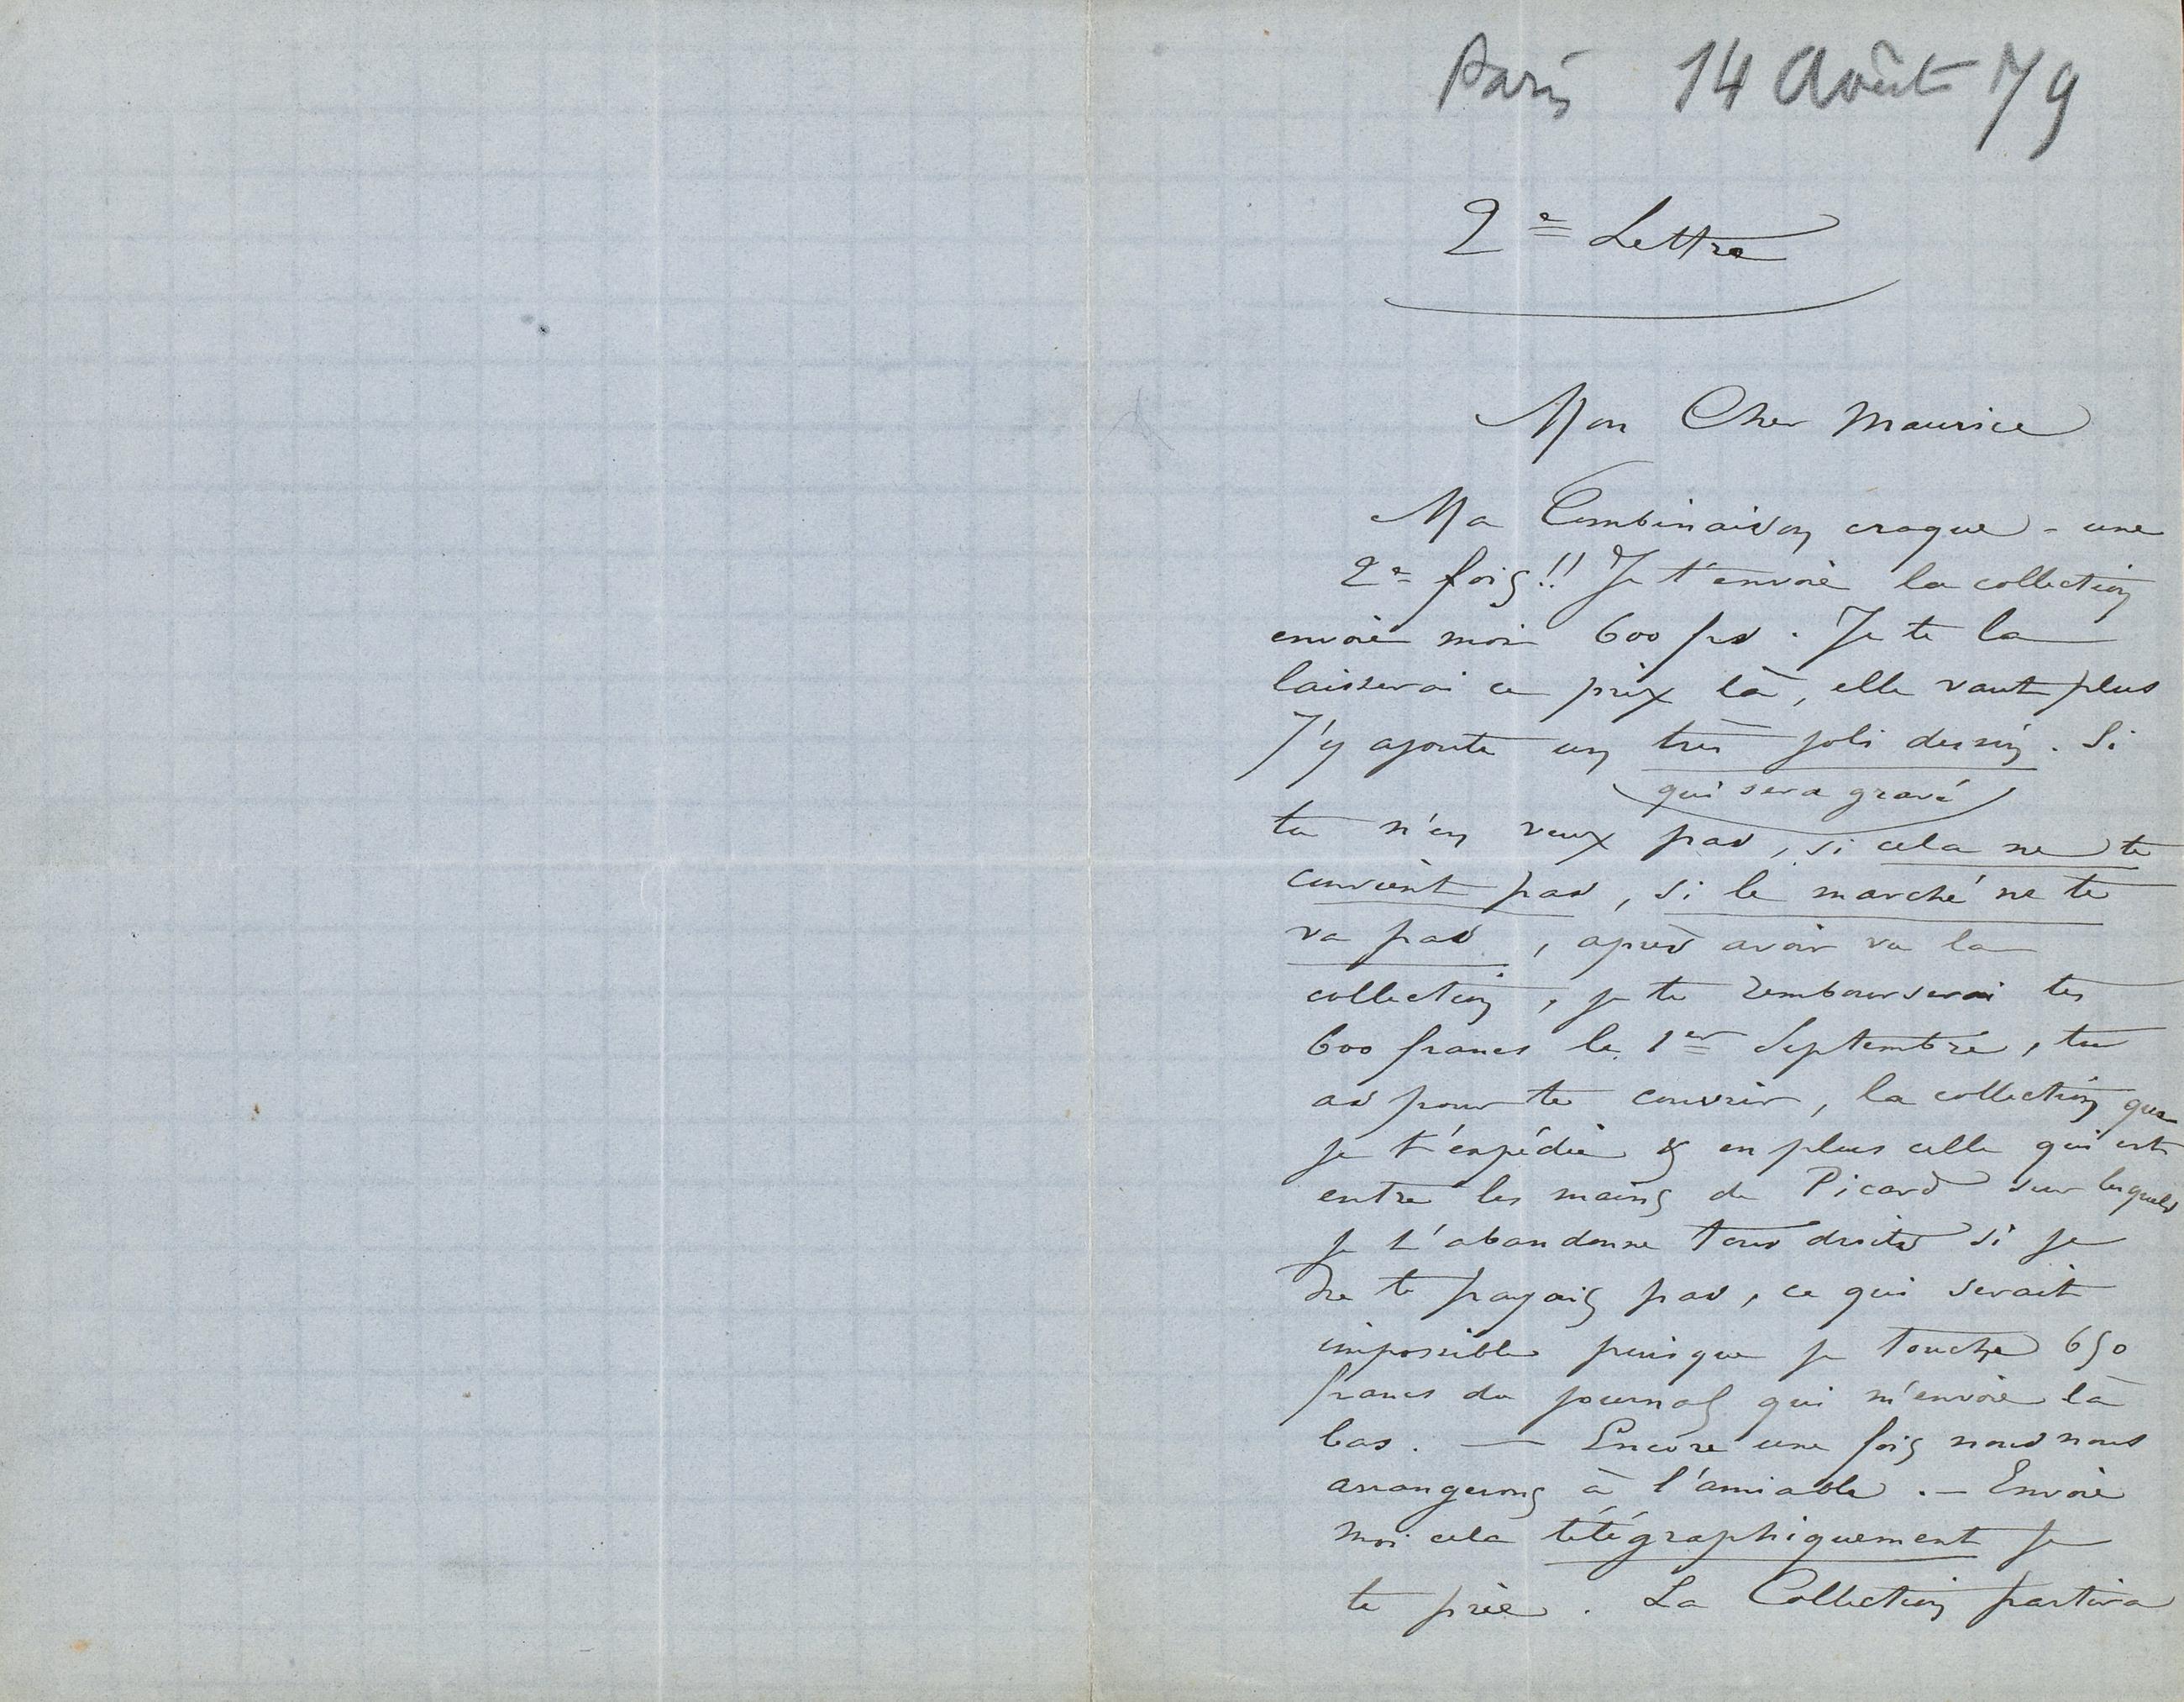 Paris 14 Août 79
2e Lettre
Mon Cher Maurice
Ma Combinaison craque - une
2e fois!! Je t'envoie la collection
envoie moi 600 frs. Je te la
laisserai ce prix là, elle vaut plus
J'y ajoute un très joli dessin. Si
qui sera gravé
tu n'en veux pas, si cela ne te
convient pas, si le marché ne te
va pas, après avoir vu la
collection, je te rembourserai tes
600 francs le 1er Septembre, tu
as pour te couvrir, la collection que
je t'expédie & en plus celle qui est
entre les mains de Picard sur lesquels
je t'abandonne tous droits si je
ne te payais pas, ce qui serait
impossible puisque je touche 650
francs du journal qui m'envoie là
bas. — Encore une fois nous nous
arrangerons à l'amiable. — Envoie
moi cela télégraphiquement je
te prie. La Collection partira